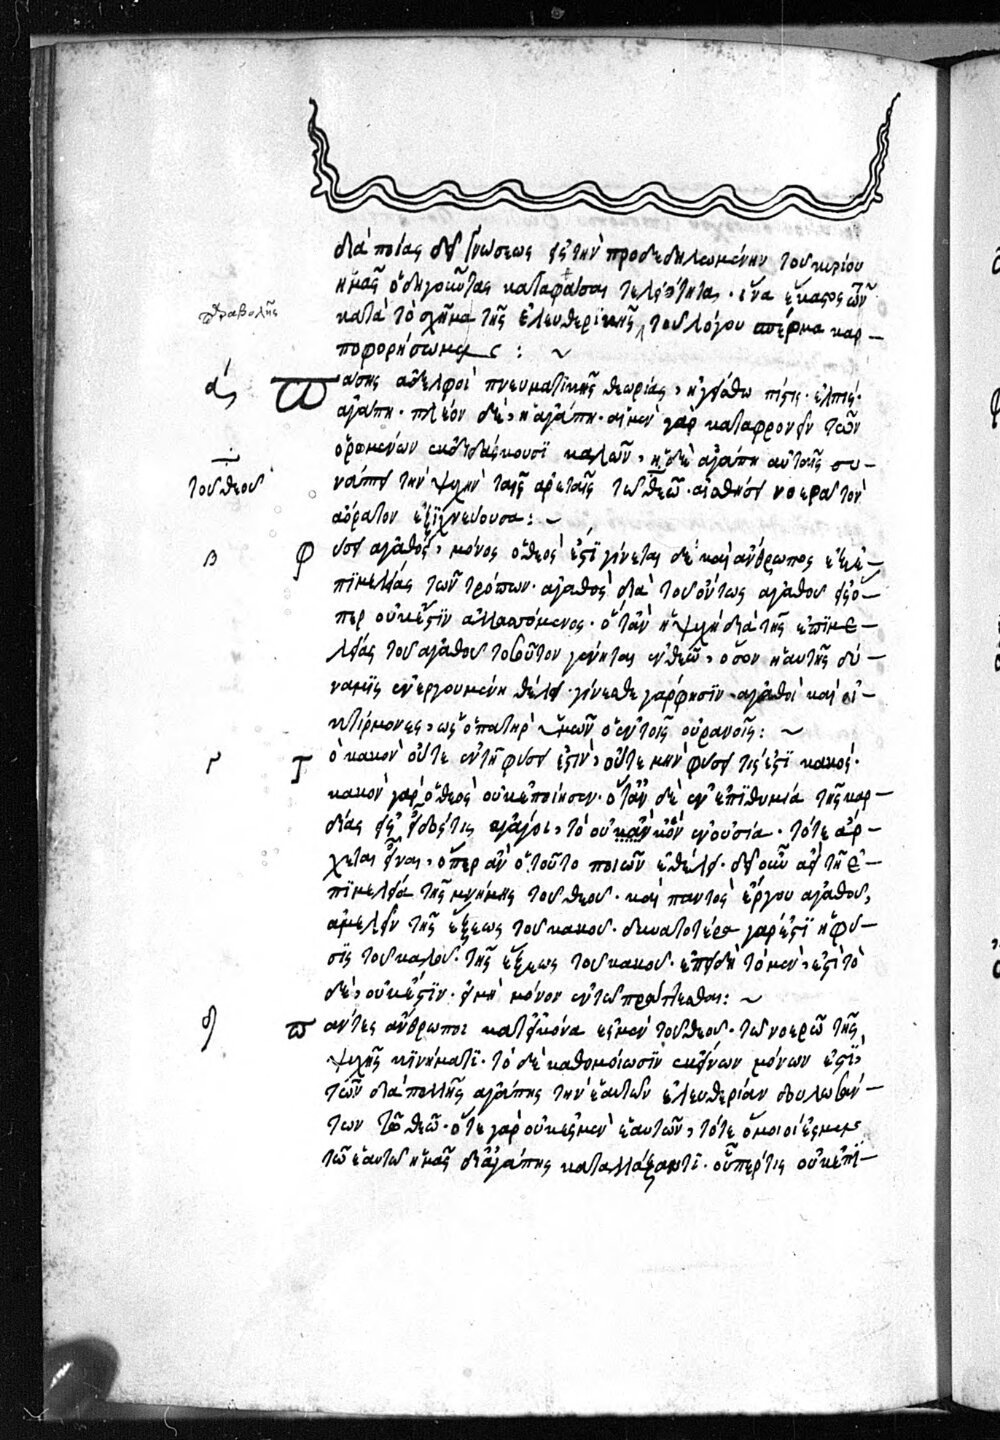 διὰ ποίας δεῖ γνώσεως εἰς τὴν προδεδηλωμένην τοῦ κυρίου
ἡμᾶς ὁδηγοῦντας καταφθάσαι τελειότητα· ἵνα ἕκαστος ὢν
παραβολῆς
κατὰ τὸ σχῆμα τῆς ἐλευθερικῆς τοῦ λόγου σπέρμα καρ-
ποφορήσωμεν : ~
α΄
Πάσης ἀδελφοὶ πνευματικῆς θεωρίας, ἡγείσθω πίστις· ἐλπίς·
ἀγάπη· πλέον δὲ, ἡ ἀγάπη· αἱ μὲν γὰρ καταφρονεῖν τῶν
ὁρωμένων ἐκδιδάσκουσι καλῶν, ἡ δὲ ἀγάπη αὐταῖς συ-
τοῦ θεοῦ
νάπτει τὴν ψυχὴν ταῖς ἀρεταῖς τῷ θεῷ· αἰσθήσει νοερᾷ τὸν
ἀόρατον ἐξιχνεύουσα : ~
β
Φύσει ἀγαθὸς, μόνος ὁ θεὸς ἐστὶ γίνεται δὲ καὶ ἄνθρωπος ἐξ ἐ-
πιμελείας τῶν τρόπων· ἀγαθὸς διὰ τοῦ ὄντως ἀγαθοῦ εἰς ὅ-
περ οὐκ ἔστιν ἀλλασσόμενος· ὅταν ἡ ψυχὴ διὰ τῆς ἐπιμε-
λείας τοῦ ἀγαθοῦ τοσοῦτον γένηται ἐν θεῷ, ὅσον ἡ αὐτῆς δύ-
ναμις ἐνεργουμένη θέλει· γίνεσθε γάρ φησιν ἀγαθοὶ καὶ οἰ-
κτίρμονες, ὡς ὁ πατὴρ ὑμῶν ὁ ἐν τοῖς οὐρανοῖς : ~
γ
Τὸ κακὸν οὔτε ἐν τῇ φύσει ἐστὶν, οὔτε μὴν φύσει τίς ἐστι κακός·
κακὸν γὰρ ὁ θεὸς οὐκ ἐποίησεν· ὅταν δὲ ἐν ἐπιθυμίᾳ τῆς καρ-
δίας εἰς εἶδός τις ἀγάγοι, τὸ οὐκ ὂν ἐν οὐσίᾳ· τότε ἄρ-
χεται εἶναι, ὅπερ ἂν ὁ τοῦτο ποιῶν ἐθέλει· δεῖ οὖν ἀεὶ τῇ ἐ-
πιμελείᾳ τῆς μνήμης τοῦ θεοῦ· καὶ παντὸς ἔργου ἀγαθοῦ,
ἀμελεῖν τῆς ἕξεως τοῦ κακοῦ· δυνατοτέρα γάρ ἐστι ἡ φύ-
σις τοῦ καλοῦ· τῆς ἕξεως τοῦ κακοῦ· ἐπειδὴ τὸ μὲν, ἐστὶ τὸ
δὲ, οὐκ ἔστιν· εἰ μὴ μόνον ἐν τῷ πράττεσθαι : ~
δ
Πάντες ἄνθρωποι κατ' εἰκόνα ἐσμὲν τοῦ θεοῦ· τῷ νοερῷ τῆς
ψυχῆς κινήματι· τὸ δὲ καθ' ὁμοίωσιν ἐκείνων μόνων ἐστὶ,
τῶν διὰ πολλῆς ἀγάπης τὴν ἑαυτῶν ἐλευθερίαν δουλωσάν-
των τῷ θεῷ· ὅτε γὰρ οὐκ ἐσμὲν ἑαυτῶν, τότε ὅμοιοί ἐσμεν
τῷ ἑαυτῷ ἡμᾶς δι' ἀγάπης καταλλάξαντι· οὗπερ τις οὐκ ἐπι-